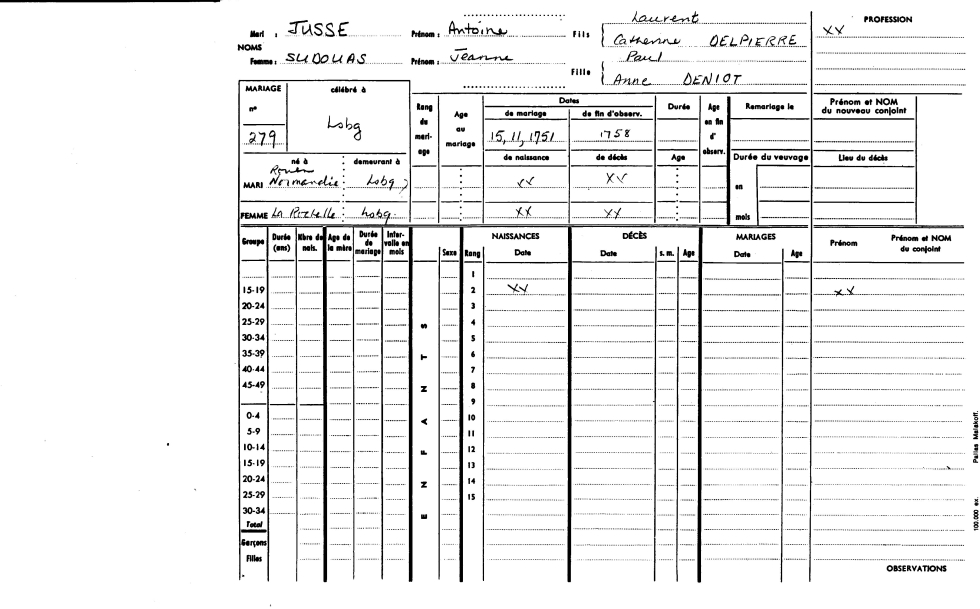 Mari : JUSSE Prénom : Antoine Fils Laurent PROFESSION
Catherine DELPIERRE XX
NOMS
Femme : SUDOUAS Prénom : Jeanne Fille Paul
Anne DENIOT
MARIAGE célébré à
nº
279 Lsbg
Rang du mari-age
Age au mariage
Dates
de mariage de fin d'observ.
15, 11, 1751 1758
de naissance de décès
Durée
Age
Age en fin d' observ.
Remariage le
Prénom et NOM du nouveau conjoint
Durée du veuvage Lieu du décès
en
mois
né à demeurant à
Rouen
MARI Normandie Lsbg XX XX
FEMME La Rochelle Lsbg. XX XX
Groupe Durée (ans) Nbre de nais. Age de la mère Durée de mariage Inter-valle en mois Sexe Rang NAISSANCES Date DÉCÈS Date s. m. Age MARIAGES Date Age Prénom Prénom et NOM du conjoint
1
15-19 2 XX XX
20-24 3
25-29 S 4
30-34 5
35-39 T 6
40-44 7
45-49 N 8
9
0-4 A 10
5-9 11
10-14 F 12
15-19 13
20-24 N 14
25-29 15
30-34 E
Total
Garçons
Filles
OBSERVATIONS
100.000 ex. Pallas Malakoff.